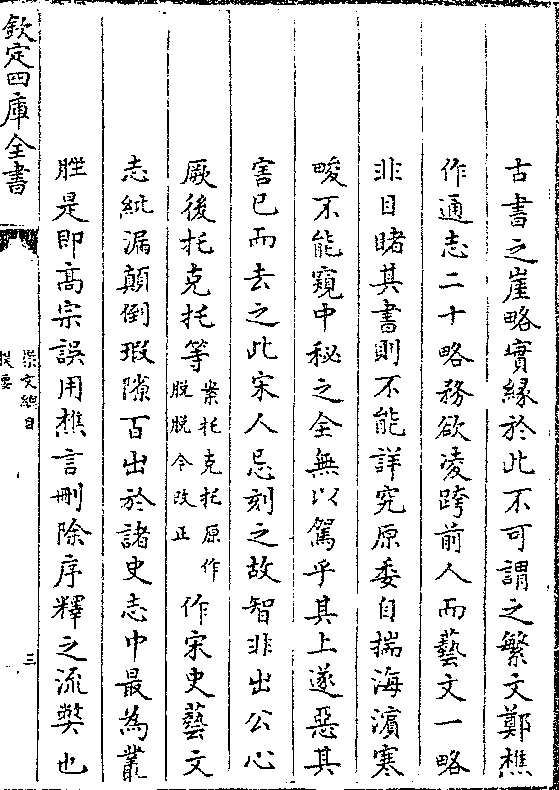 古書之崖略實緣於此不可謂之繁文鄭樵
作通志二十略務欲凌跨前人而藝文一略
非目睹其書則不能詳究原委自揣海濵寒
畯不能窺中秘之全無以駕乎其上遂惡其
害已而去之此宋人忌刻之故智非出公心
厥後托克托等案托克托原作脱脱今改正作宋史藝文
志紕漏顛倒瑕隙百出於諸史志中最為叢
脞是即髙宗誤用樵言刪除序釋之流獘也
欽定四庫全書
崇文總目
提要
三